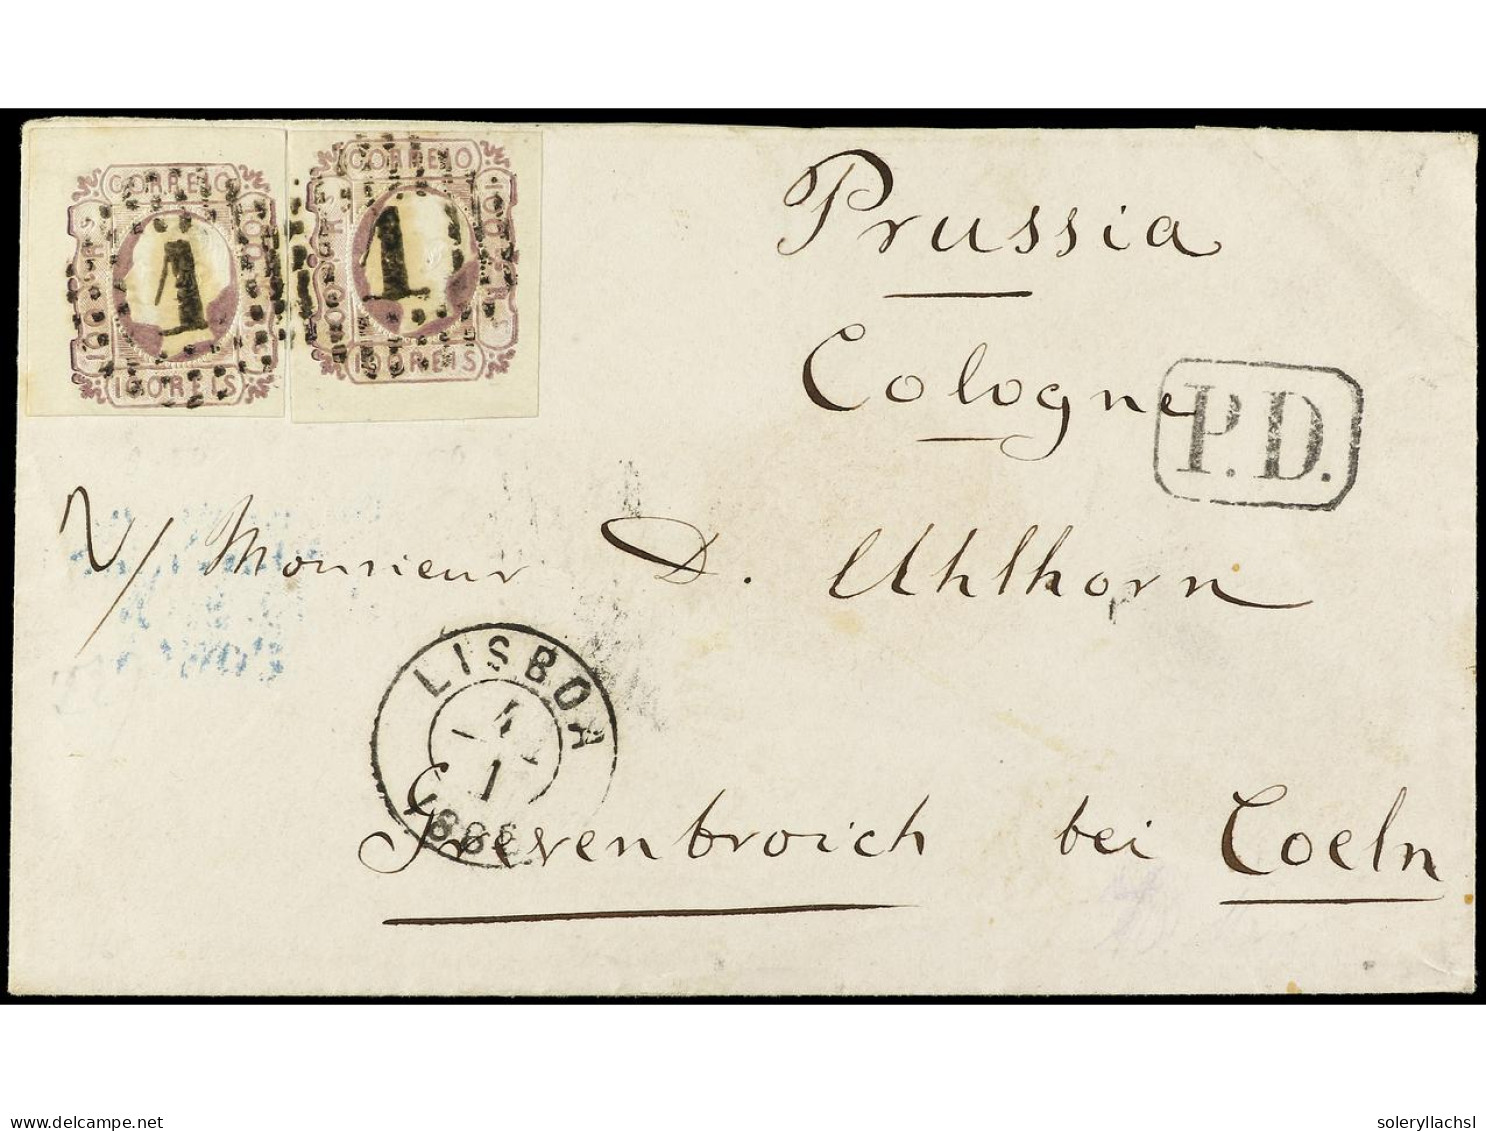 CORREIO CORREIO
100 REIS 100 REIS
1 1
100 REIS 100 REIS
Prussia
Cologne
P.D.
Monsieur D. Uhlhorn
LISBOA
4
1
Grevenbroich bei Coeln
delcampe.net
soleryllachsl